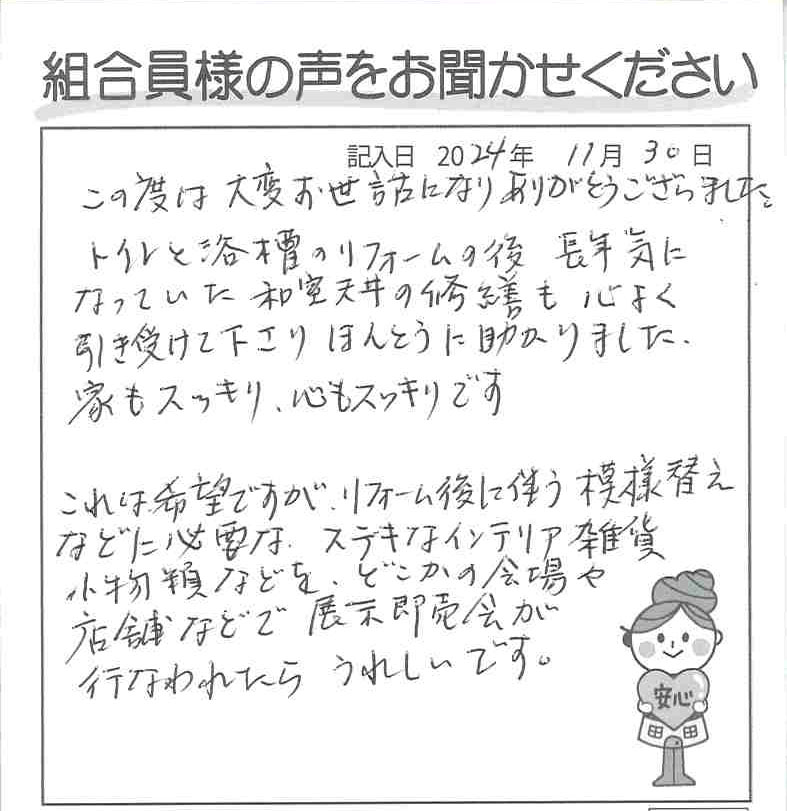 組合員様の声をお聞かせください
記入日 2024年 11月 30日
この度は 大変お世話になりありがとうございました。
トイレと浴槽のリフォームの後 長年気に
なっていた 和室天井の修繕も 心よく
引き受けて下さり ほんとうに助かりました、
家もスッキリ、心もスッキリです
これは希望ですが、リフォーム後に伴う 模様替え
などに必要な、ステキなインテリア雑貨
小物類などを、どこかの会場や
店舗などで 展示即売会が
行なわれたら うれしいです。
安心